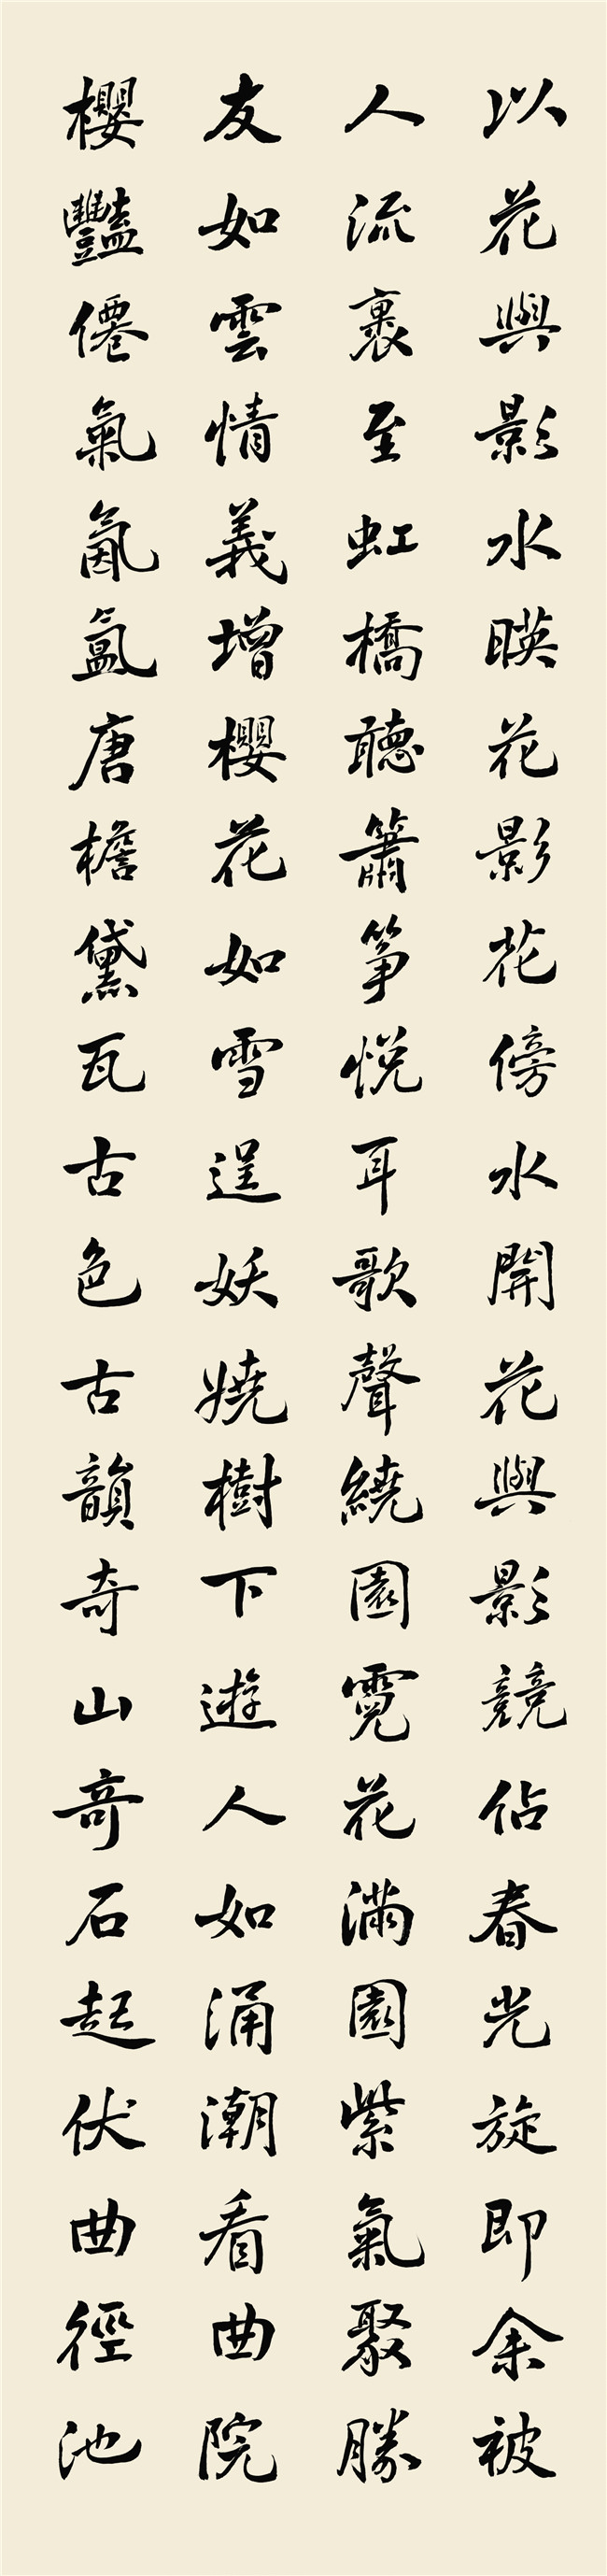 以花與影水暎花影花傍水開花與影競佔春光旋即余被
人流裹至虹橋聽簫箏悅耳歌聲繞園霓花滿園紫氣聚勝
友如雲情義增櫻花如雪逞妖嬈樹下遊人如涌潮看曲院
櫻豔僊氣氤氳唐檐黛瓦古色古韻奇山奇石起伏曲徑池